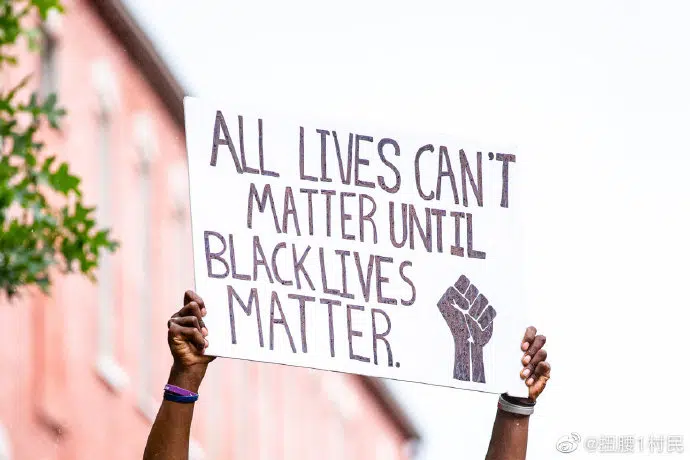 ALL LIVES CAN'T
MATTER UNTIL
BLACK LIVES
MATTER.
@扭腰1村民